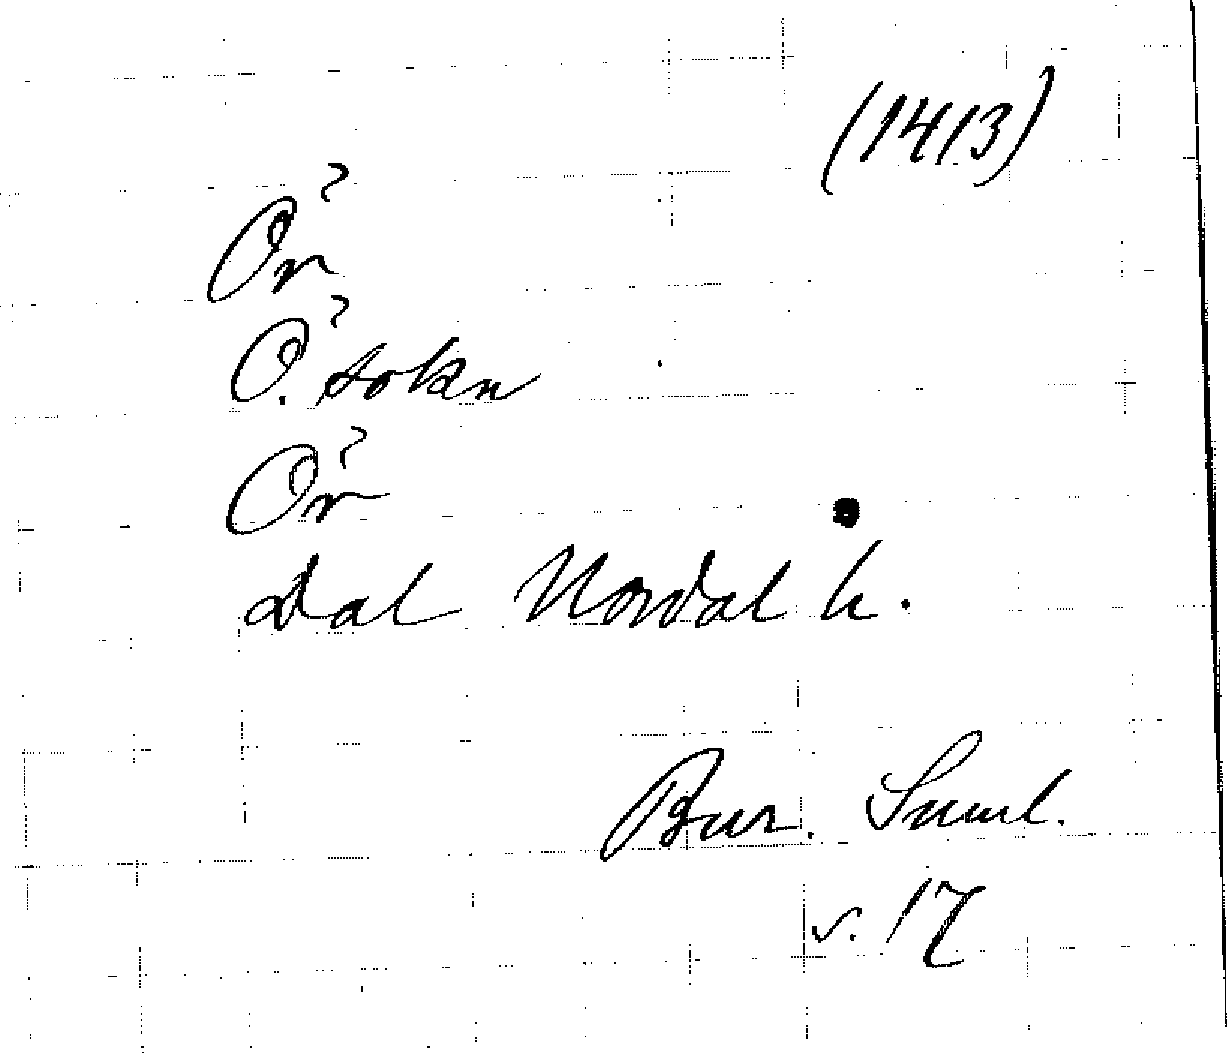 (1413)
Ör
Ö. sokn
Ör
Dal Nordal h.
Bur. Suml.
s. 17